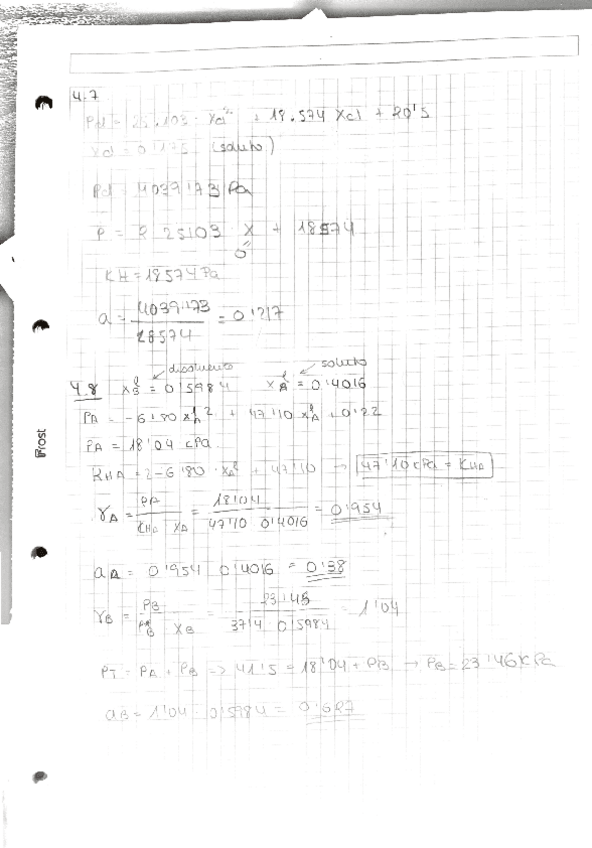 4.7
Pcl = 25.103 · Xcl² + 18.574 Xcl + 20'5
Xcl = 0'175 (soluto)
Pcl = 4039'173 Pa
P = 2 25103 X + 18574
0''
KH = 18574 Pa
a = 4039'173 / 18574 = 0'217
disolvente
soluto
4.8 x_B^l = 0'5984 x_A^l = 0'4016
PA = -6'80 x_A^l ² + 47'10 x_A^l + 0'22
PA = 18'04 cPa
KHA = 2-6'80 · x_A^l + 47'10 → 47'10 cPa = KHA
γA = PA / KHA XA = 18'04 / 47'10 0'4016 = 0'954
aA = 0'954 0'4016 = 0'38
γB = PB / P*B XB = 23'45 / 37'4 · 0'5984 = 1'04
PT = PA + PB => 41'5 = 18'04 + PB → PB = 23'46 KPa
aB = 1'04 · 0'5984 = 0'627
Frost